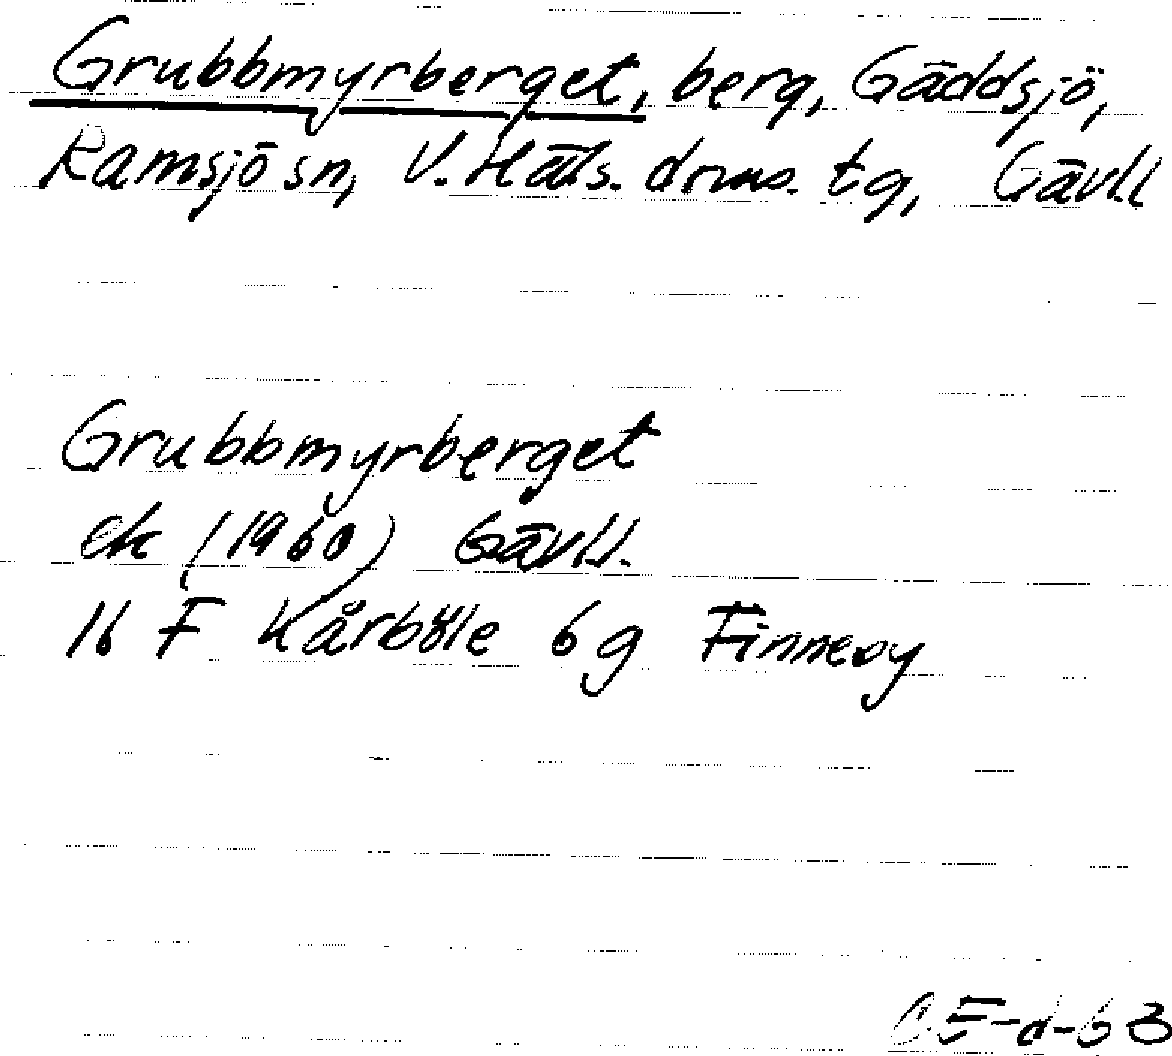 Grubbmyrberget, berg, Gäddsjö,
Ramsjö sn, V. Häls. dms. tg, Gävl.l
Grubbmyrberget
ek (1960) Gävl.l.
16 F Kårböle 6 g Finneby